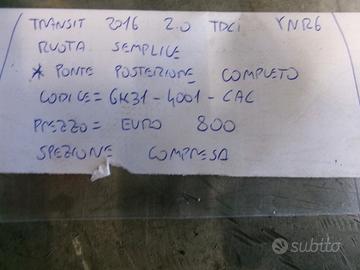 TRANSIT 2016 2.0 TDCi YNR6
RUOTA SEMPLICE
* PONTE POSTERIORE COMPLETO
CODICE = GK31 - 4001 - CAC
PREZZO = EURO 800
SPEZIONE COMPRESA
subito